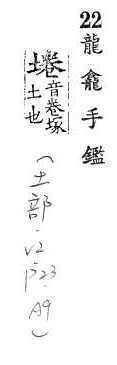 22 龍龕手鑑
墭 音卷塚
土也
(土部·V2
P23·
A9)